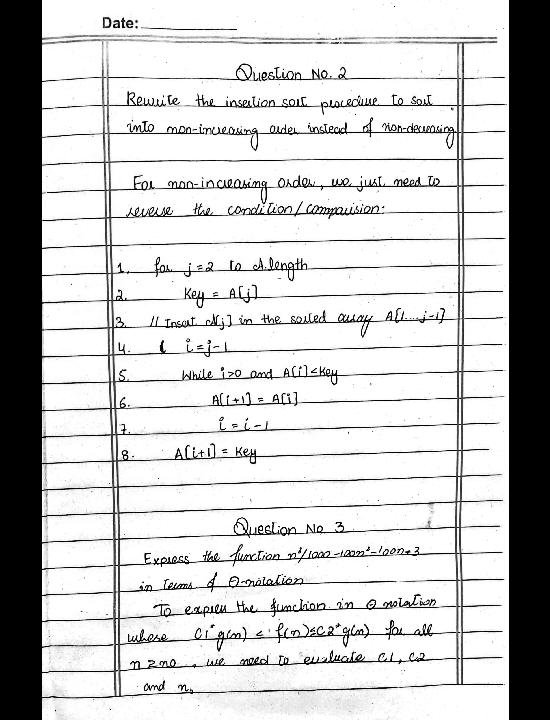 Date:
Question No. 2
Rewrite the insertion sort procedure to sort
into non-increasing order instead of non-decreasing
For non-increasing order, we just need to
reverse the condition/comparision:
1. for j=2 to A.length
2. Key = A[j]
3. // Insert A[j] in the sorted array A[1....j-1]
4. i=j-1
5. While i>0 and A[i]<Key
6. A[i+1] = A[i]
7. i = i-1
8. A[i+1] = Key
Question No 3
Express the function n³/1000-100n²-100n+3
in terms of Θ-notation
To express the function in Θ notation
where C1*g(n) ≤ f(n)≤C2*g(n) for all
n≥no, we need to evaluate C1, C2
and n₀